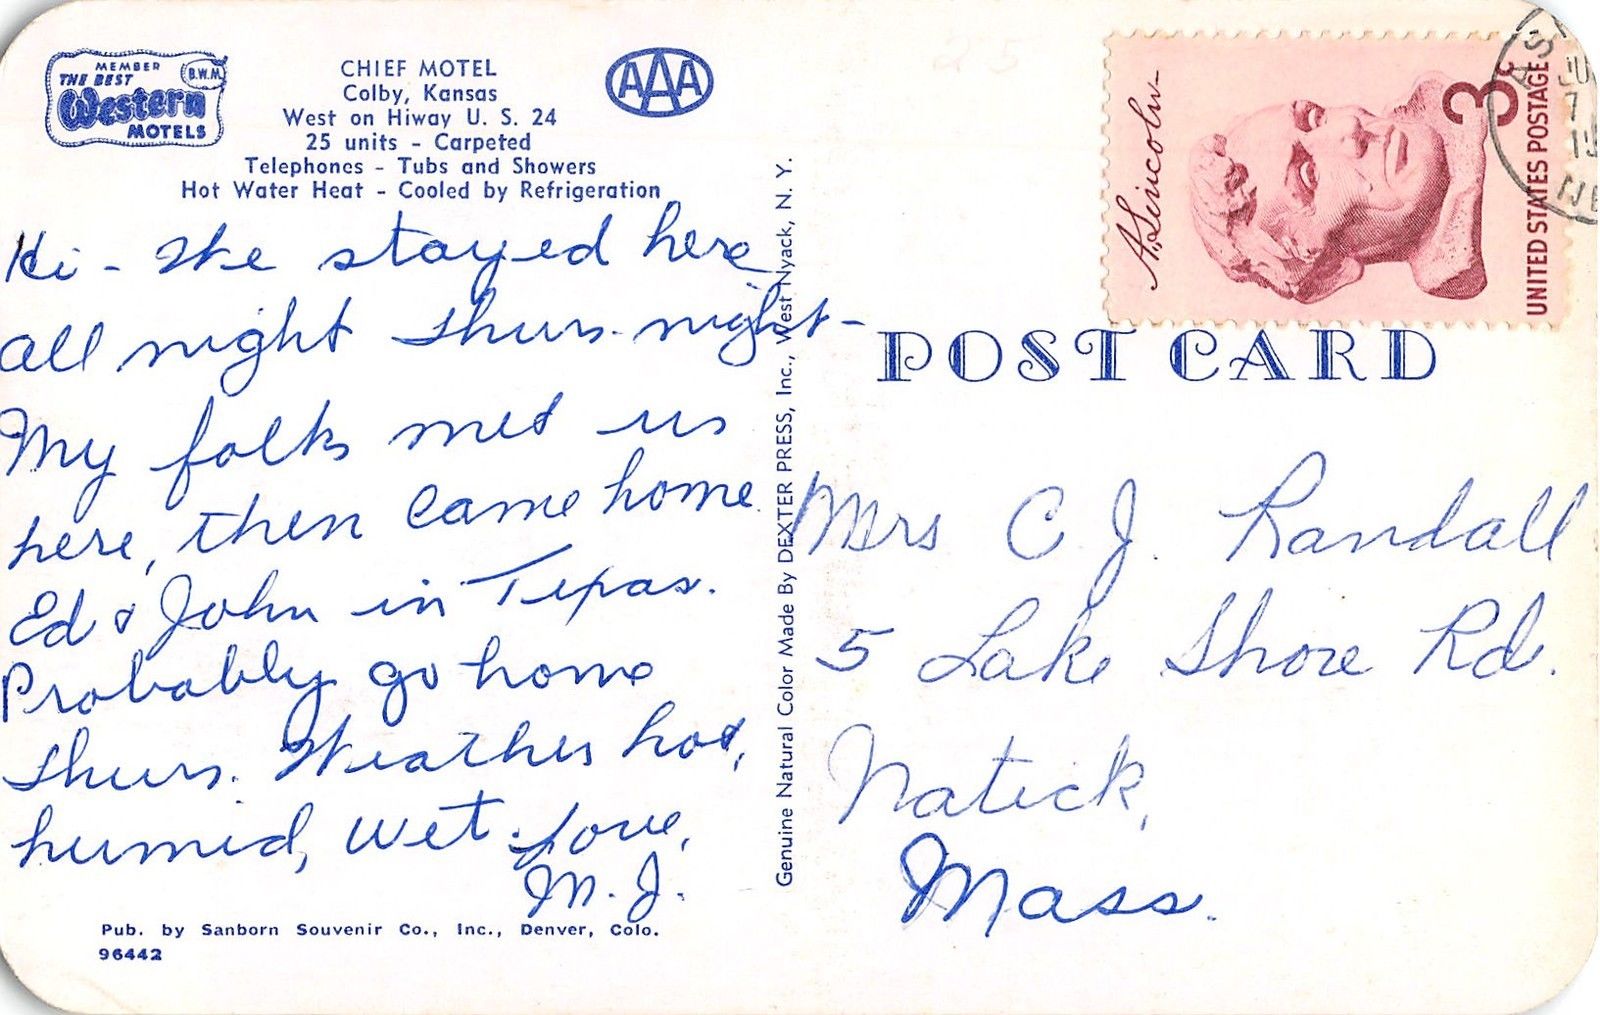 MEMBER
THE BEST
Western
MOTELS
B.W.M.
CHIEF MOTEL
Colby, Kansas
West on Hiway U. S. 24
25 units - Carpeted
Telephones - Tubs and Showers
Hot Water Heat - Cooled by Refrigeration
AAA
Hi - We stayed here
all night Thurs. night -
My folks met us
here, then came home.
Ed & John in Texas.
Probably go home
Thurs. Weather hot,
humid, wet. Love,
M. J.
Pub. by Sanborn Souvenir Co., Inc., Denver, Colo.
96442
Genuine Natural Color Made By DEXTER PRESS, Inc., West Nyack, N. Y.
25
A. Lincoln
3¢
UNITED STATES POSTAGE
POST CARD
Mrs C. J. Randall
5 Lake Shore Rd.
Natick,
Mass.